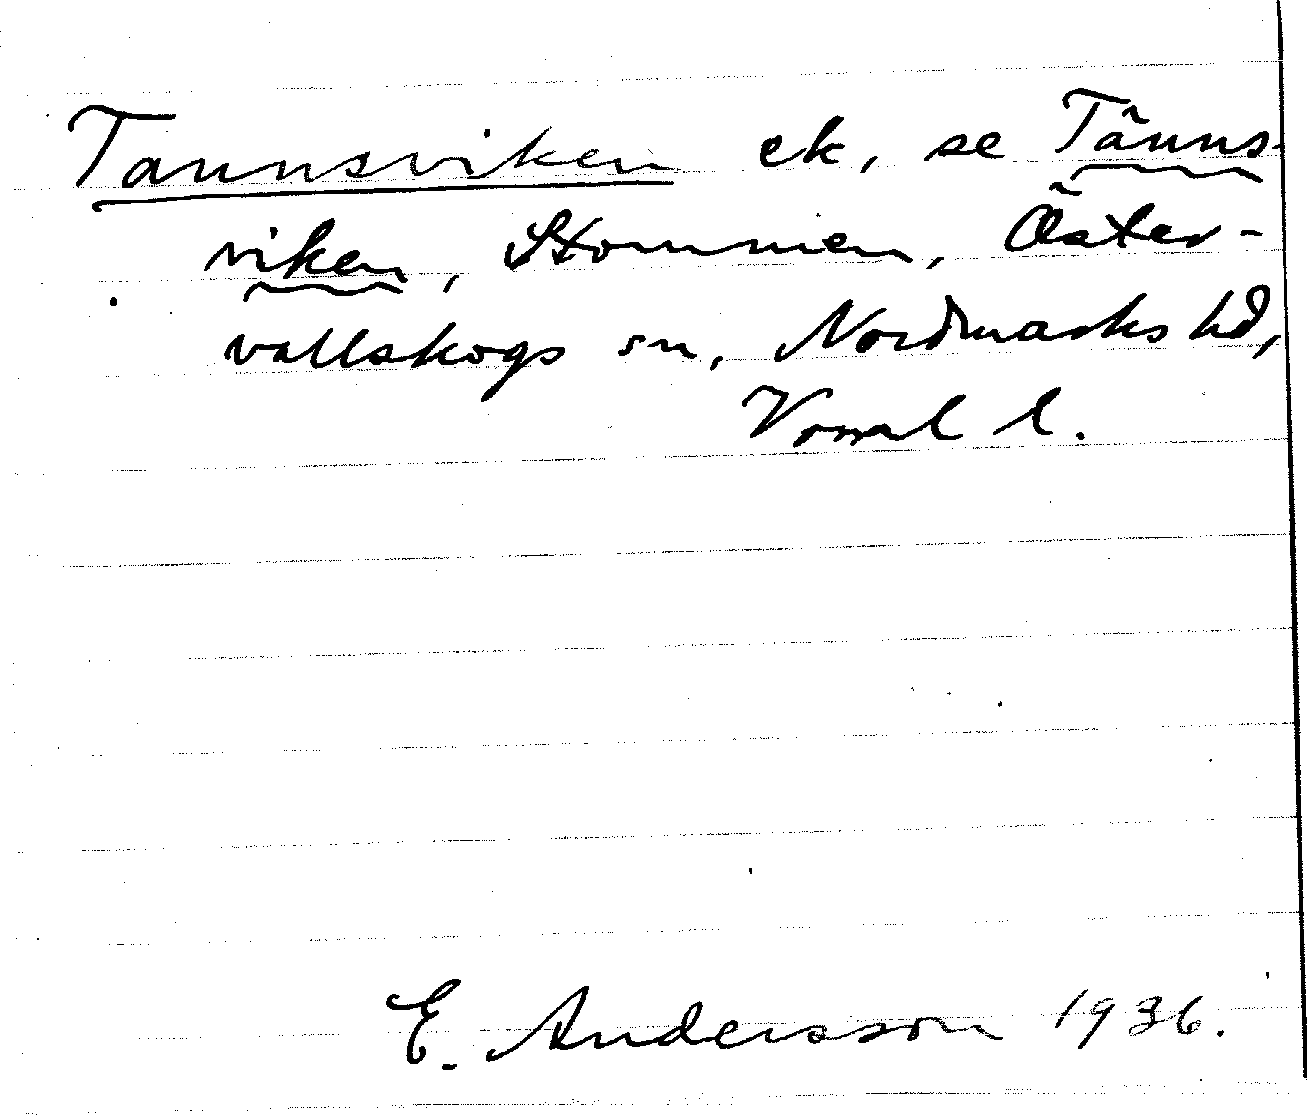 Tannsviken ek, se Tänns-
viken, Stommen, Öster-
vallskogs sn, Nordmarks hd,
Varml l.
E. Andersson 1936.